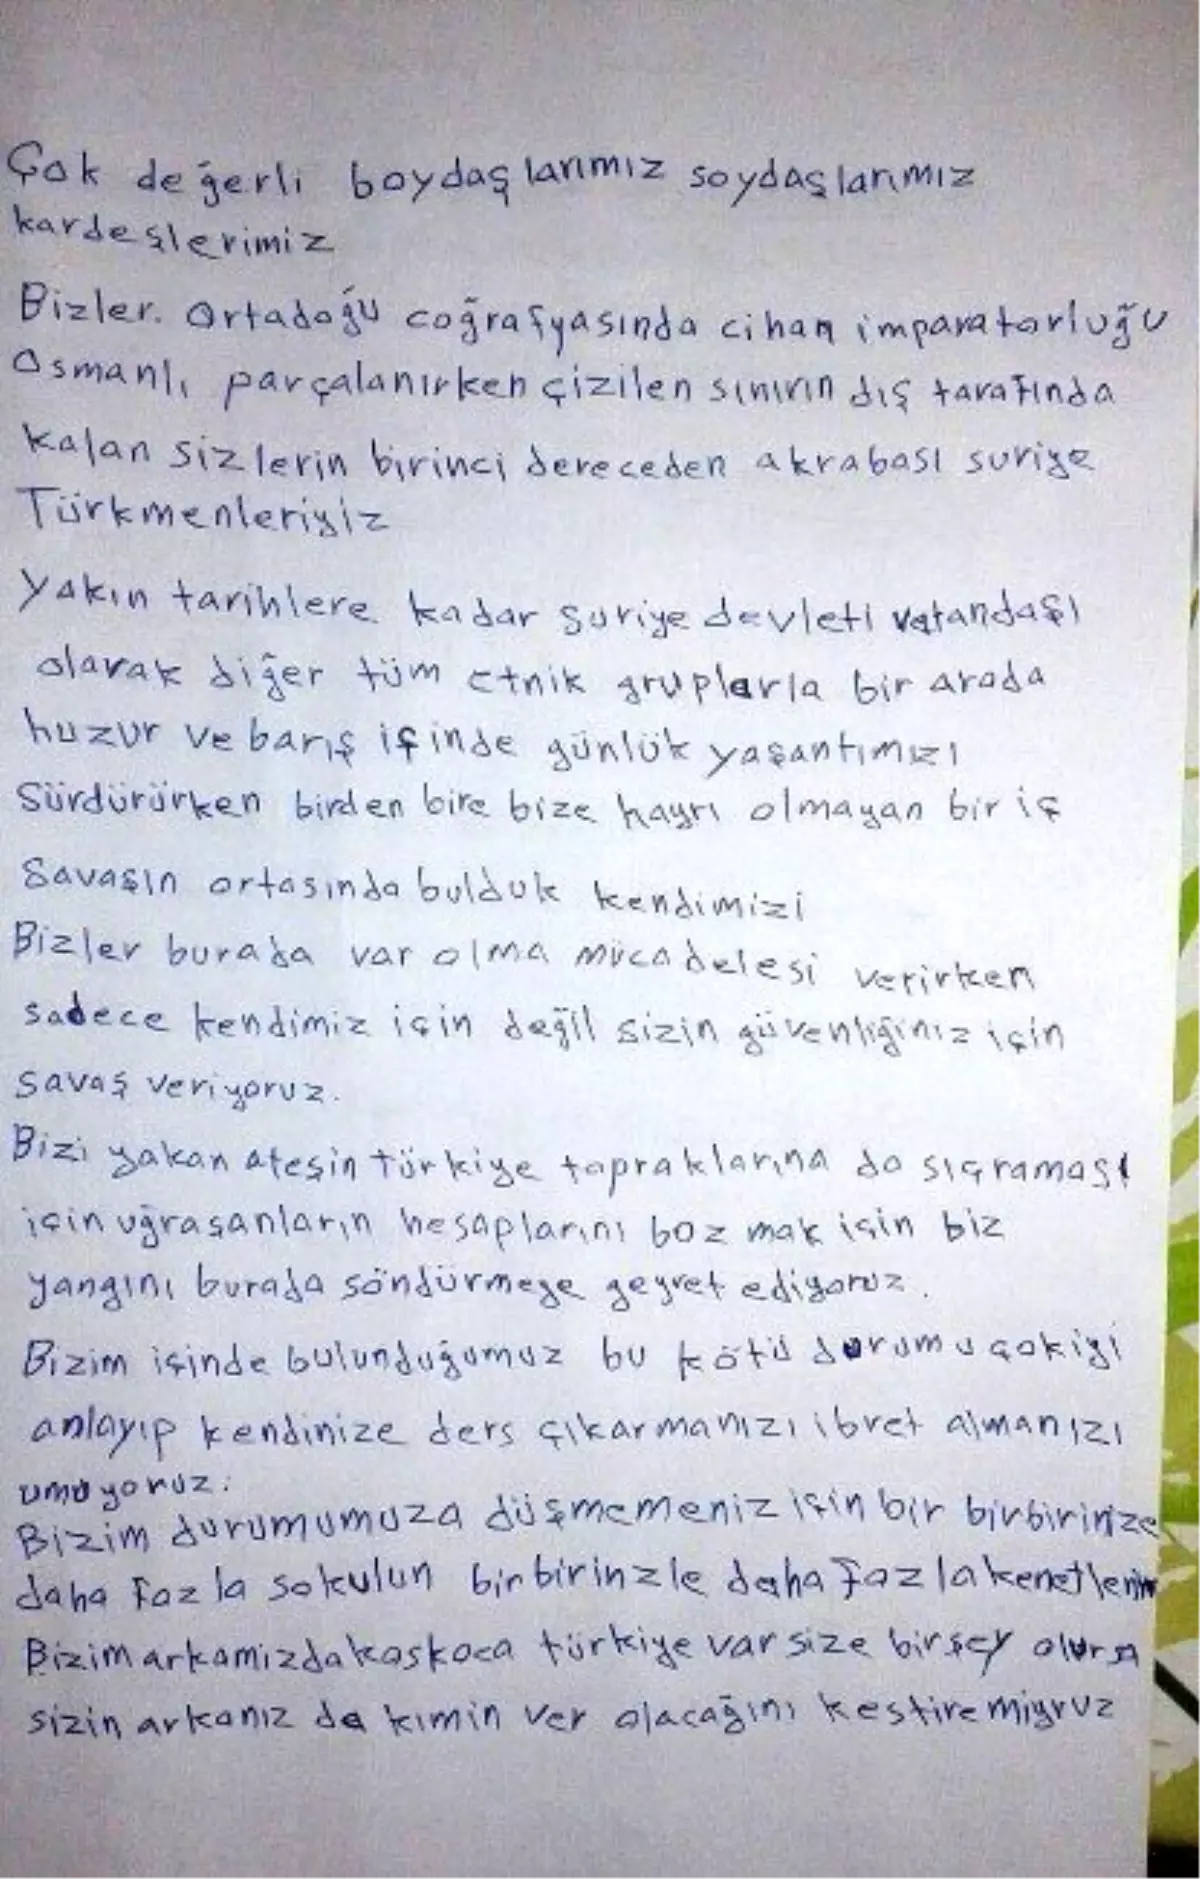 Çok değerli boydaşlarımız soydaşlarımız
kardeşlerimiz
Bizler. Ortadoğu coğrafyasında cihan imparatorluğu
Osmanlı parçalanırken çizilen sınırın dış tarafında
kalan sizlerin birinci dereceden akrabası suriye
Türkmenleriyiz
Yakın tarihlere kadar suriye devleti vatandaşı
olarak diğer tüm etnik gruplarla bir arada
huzur ve barış içinde günlük yaşantımızı
Sürdürürken birden bire bize hayrı olmayan bir iç
Savaşın ortasında bulduk kendimizi
Bizler burada var olma mücadelesi verirken
sadece kendimiz için değil sizin güvenliğiniz için
savaş veriyoruz.
Bizi yakan ateşin türkiye topraklarına da sıçraması
için uğraşanların hesaplarını bozmak için biz
yangını burada söndürmeye geyret ediyoruz.
Bizim içinde bulunduğumuz bu kötü durumu çokiyi
anlayıp kendinize ders çıkarmanızı ibret almanızı
umuyoruz.
Bizim durumumuza düşmemeniz için bir birbirinize
daha fazla sokulun birbirinzle daha fazla kenetlenin
Bizim arkamızda koskoca türkiye var size birşey olursa
sizin arkanız da kimin ver olacağını kestiremiyruz